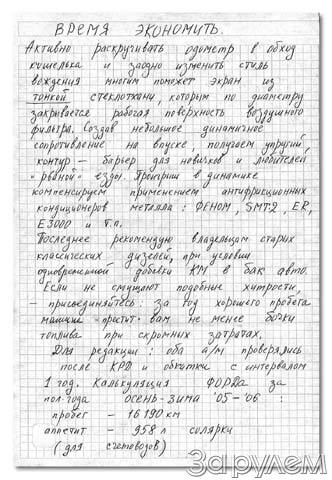 ВРЕМЯ ЭКОНОМИТЬ.
Активно раскручивать одометр в обход
кошелька и заодно изменить стиль
вождения многим поможет экран из
тонкой стеклоткани, которым по диаметру
закрывается рабочая поверхность воздушного
фильтра. Создав небольшое динамичное
сопротивление на впуске, получаем упругий
контур – барьер для новичков и любителей
"рваной" езды. Проигрыш в динамике
компенсируем применением антифрикционных
кондиционеров металла: ФЕНОМ, SMT2, ER,
E3000 и т.п.
Последнее рекомендую владельцам старых
классических дизелей, при условии
одновременной добавки КМ в бак авто.
Если не смущают подобные хитрости,
– присоединяйтесь: за год хорошего пробега
машина "простит" вам не менее бочки
топлива при скромных затратах.
Для редакции: оба а/м проверялись
после КРД и обкатки с интервалом
1 год. Калькуляция ФОРДа за
пол-года осень-зима '05-'06:
пробег – 16190 км
аппетит – 958 л солярки
(для счетоводов)
Зарулем